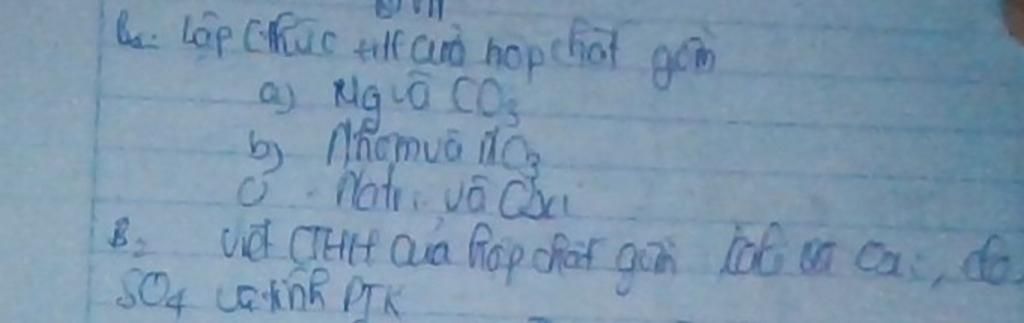 B1: Lập CThức HH của hợp chất gồm
a) Mg và CO3
b) Nhôm và NO3
c) Natri và Oxi
B2 Viết CTHH của hợp chất gồm
SO4 và tính PTK